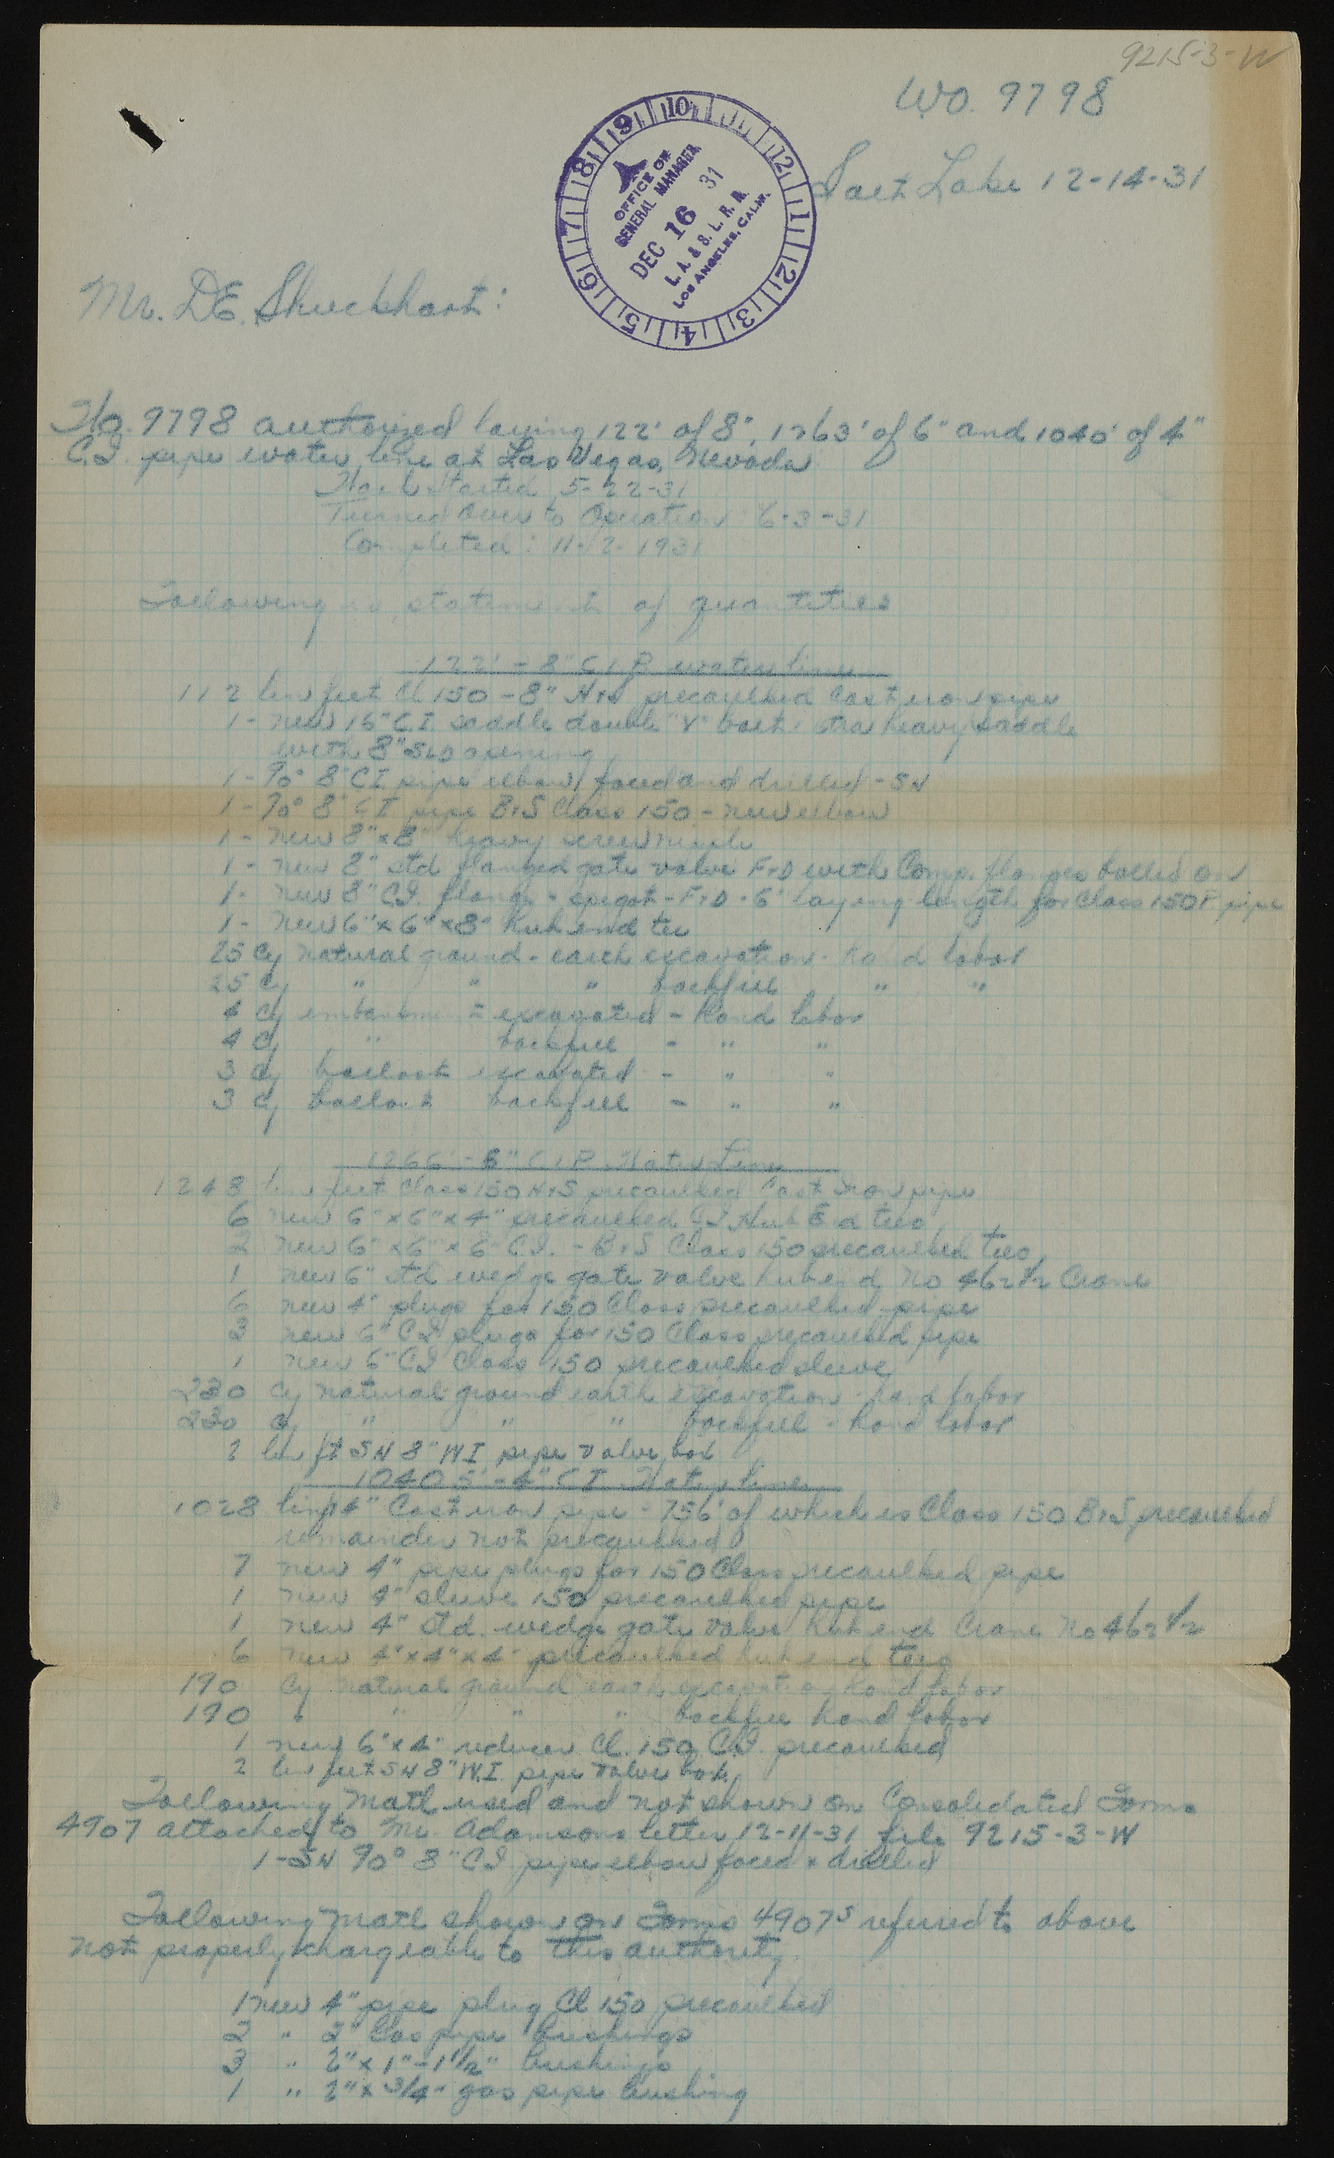 9215-3-W
WO. 9798
Salt Lake 12-14-31
OFFICE OF
GENERAL MANAGER
DEC 16 31
L. A. & S. L. R. R.
LOS ANGELES, CALIF.
Mr. DE. Shuckhart:
Wo. 9798 authorized laying 122' of 8", 1263' of 6" and 1040' of 4"
C.I. pipe water line at Las Vegas, Nevada
Work Started 5-22-31
Turned Over to Operation 6-3-31
Completed: 11-2-1931
Following is statement of quantities
122' - 8" C.I.P. water line
112 lin feet Cl 150 - 8" precaulked Cast iron pipe
1 - new 16" C.I. saddle double "Y" extra heavy saddle
with 8" opening
1 - 90° 8" CI pipe elbow faced and drilled - SH
1 - 90° 8" CI pipe B&S Class 150 - new elbow
1 - new 8" x 8" heavy screw nipple
1 - new 8" std flanged gate valve F&D with Comp. flanges bolted on
1 - new 8" C.I. flange - spigot - F&D - 6' laying length for Class 150 pipe
1 - new 6" x 6" x 8" Hub end tee
25 Cy natural ground - earth excavation - hand labor
25 Cy " " " backfill " "
4 Cy embankment excavated - hand labor
4 Cy " backfill - " "
3 Cy ballast excavated - " "
3 Cy ballast backfill - " "
1266' - 6" C.I.P. Water Line
1248 lin feet Class 150 precaulked Cast iron pipe
6 new 6" x 6" x 4" precaulked CI Hub End tees
2 new 6" x 6" x 6" C.I. - B&S Class 150 precaulked tees
1 new 6" std wedge gate valve hub end No 462 1/2 Crane
6 new 4" plugs for 150 Class precaulked pipe
3 new 6" CI plugs for 150 Class precaulked pipe
1 new 6" CI Class 150 precaulked sleeve
230 Cy natural ground earth excavation - hand labor
230 Cy " " " backfill - hand labor
2 lin ft SH 8" WI pipe valve box
1040.5' - 4" CI Water line
1028 4" Cast iron pipe - 756' of which is Class 150 B&S precaulked
remainder not precaulked
7 new 4" pipe plugs for 150 Class precaulked pipe
1 new 4" sleeve 150 precaulked pipe
1 new 4" Std. wedge gate valve hub end Crane No 462 1/2
6 new 4" x 4" x 4" precaulked hub end tees
190 Cy natural ground earth excavation hand labor
190 " " " " backfill hand labor
1 new 6" x 4" reducer Cl. 150 C.I. precaulked
2 lin feet SH 8" W.I. pipe valve box
Following Matl used and not shown on Consolidated Forms
4907 attached to Mr. Adamsons letter 12-11-31 file 9215-3-W
1 - SH 90° 8" CI pipe elbow faced & drilled
Following Matl shown on Forms 4907s referred to above
not properly chargeable to this authority
1 new 4" pipe plug Cl 150 precaulked
2 " 2" Gas pipe bushings
3 " 2" x 1" - 1 1/2" bushings
1 " 2" x 3/4" gas pipe bushing